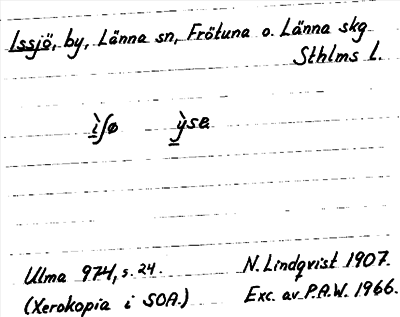 Issjö, by, Länna sn, Frötuna o. Länna skg
Sthlms l.
ı̲̀ʃø ỳ̲sɐ
Ulma 974, s. 24. N. Lindqvist 1907.
(Xerokopia i SOA.) Exc. av P.A.W. 1966.